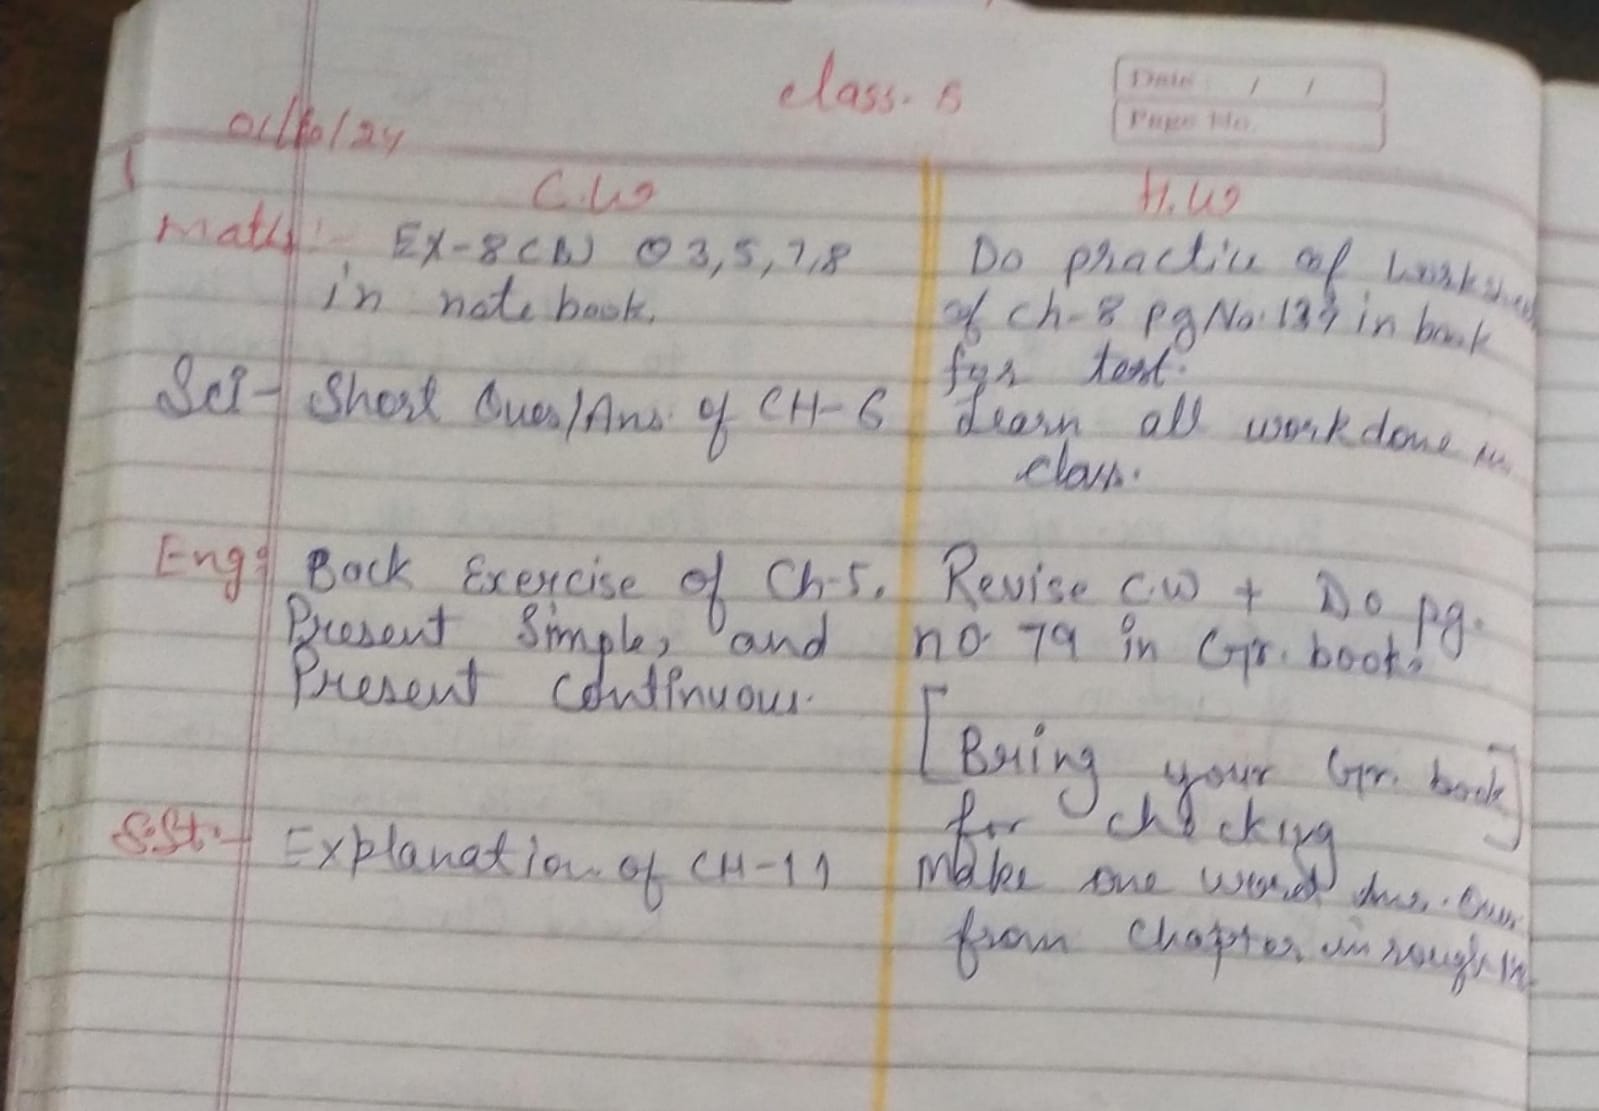 class. 5
Date / /
Page No.
01/10/24
C.W
H.W
Maths:- Ex-8(b) Q 3,5,7,8
in note book.
Do practice of worksheet
of ch-8 pg No. in book
for test.
Sci- Short Ques/Ans. of CH-6
Learn all work done in
class.
Eng: Back Exercise of Ch-5.
Present Simple, and
Present continuous.
Revise C.W + Do pg.
no 79 in Gr. book.
[Bring your Gr. book]
for checking
S.St:- Explanation of CH-11
Make one word Ans. Ques
from Chapter in rough